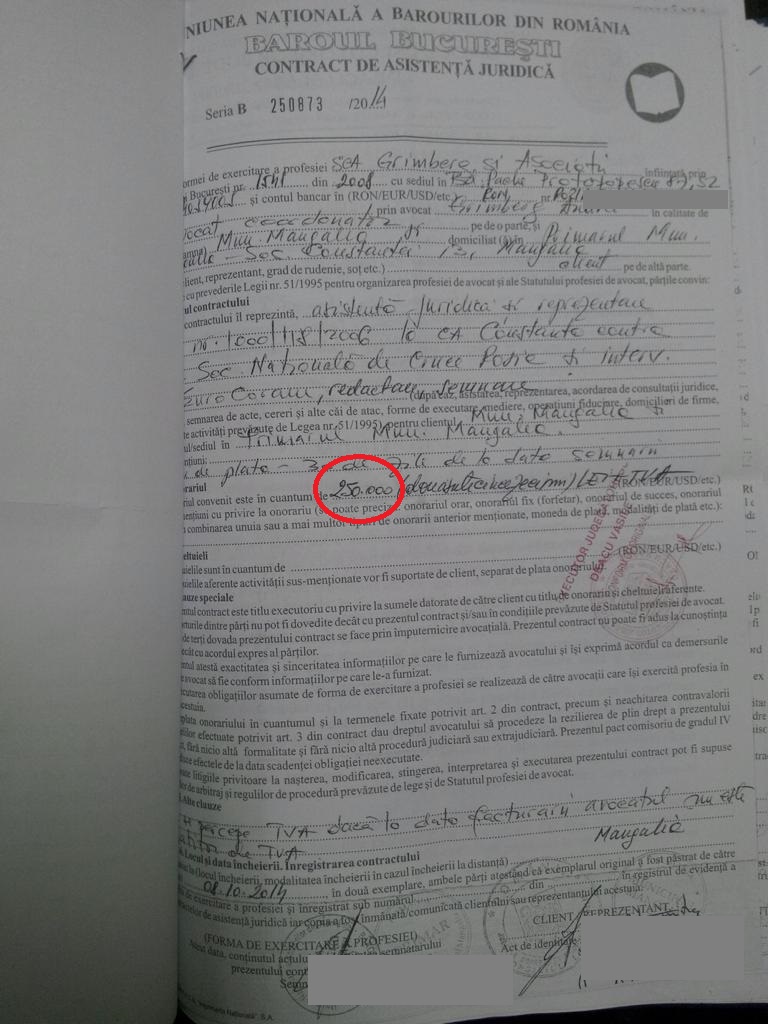 NIUNEA NAȚIONALĂ A BAROURILOR DIN ROMÂNIA
BAROUL BUCUREȘTI
CONTRACT DE ASISTENȚĂ JURIDICĂ
Seria B 250873 /2014
ormei de exercitare a profesiei SCA Grimberg și Asociații înființată prin
București nr. 1541 din 2008 cu sediul în Bd. Pache Protopopescu
și contul bancar în (RON/EUR/USD/etc.) Ron nr.
prin avocat Grimberg în calitate de
vocat coordonator pe de o parte, și
Mun. Mangalia domiciliat (ă) în Primarul Mun.
Șos. Constanței 13, Mangalia
client, reprezentant, grad de rudenie, soț etc.) client pe de altă parte.
cu prevederile Legii nr. 51/1995 pentru organizarea profesiei de avocat și ale Statutului profesiei de avocat, părțile convin:
ul contractului
contractului îl reprezintă, asistență juridică și reprezentare
nr. 1000/118/2006 la CA Constanța contra
Soc. Națională de Cruce Roșie și interv.
Euro Coram, redactare, semnare
(după caz, asistarea, reprezentarea, acordarea de consultații juridice,
semnarea de acte, cereri și alte căi de atac, forme de executare, mediere, operațiuni fiduciare, domicilieri de firme,
te activități prevăzute de Legea nr. 51/1995) pentru clientul Mun. Mangalia și
l/sediul în Primarul Mun. Mangalia.
de plată - 3 de zile de la data semnării
rariul
riul convenit este în cuantum de 250.000 (douăsutecincizecimii) LEI + TVA (RON/EUR/USD/etc.)
mențiuni cu privire la onorariu (se poate preciza onorariul orar, onorariul fix (forfetar), onorariul de succes, onorariul
combinarea unuia sau a mai multor tipuri de onorarii anterior menționate, moneda de plată, modalități de plată etc.):
eltuieli
uielile sunt în cuantum de (RON/EUR/USD/etc.)
uielile aferente activității sus-menționate vor fi suportate de client, separat de plata onorariului.
auze speciale
ntul contract este titlu executoriu cu privire la sumele datorate de către client cu titlu de onorariu și cheltuieli aferente.
rturile dintre părți nu pot fi dovedite decât cu prezentul contract și/sau în condițiile prevăzute de Statutul profesiei de avocat.
de terți dovada prezentului contract se face prin împuternicire avocațială. Prezentul contract nu poate fi adus la cunoștința
decât cu acordul expres al părților.
ntul atestă exactitatea și sinceritatea informațiilor pe care le furnizează avocatului și își exprimă acordul ca demersurile
e avocat să fie conform informațiilor pe care le-a furnizat.
cutarea obligațiilor asumate de forma de exercitare a profesiei se realizează de către avocații care își exercită profesia în
acestuia.
plata onorariului în cuantumul și la termenele fixate potrivit art. 2 din contract, precum și neachitarea contravalorii
elilor efectuate potrivit art. 3 din contract dau dreptul avocatului să procedeze la rezilierea de plin drept a prezentului
ct, fără nicio altă formalitate și fără nicio altă procedură judiciară sau extrajudiciară. Prezentul pact comisoriu de gradul IV
duce efectele de la data scadenței obligației neexecutate.
oate litigiile privitoare la nașterea, modificarea, stingerea, interpretarea și executarea prezentului contract pot fi supuse
lor de arbitraj și regulilor de procedură prevăzute de lege și de Statutul profesiei de avocat.
Alte clauze
percepe TVA dacă la data facturării avocatul nu este
plătitor de TVA
Locul și data încheierii. Înregistrarea contractului Mangalia
(locul încheierii, modalitatea încheierii în cazul încheierii la distanță)
08.10.2014, în două exemplare, ambele părți atestând că exemplarul original a fost păstrat de către
de exercitare a profesiei și înregistrat sub numărul din în registrul de evidență a
actelor de asistență juridică iar copia a fost înmânată/comunicată clientului sau reprezentantului acestuia.
(FORMA DE EXERCITARE A PROFESIEI)
CLIENT / REPREZENTANT
Act de identitate
data, conținutul actului semnatarului
prezentului